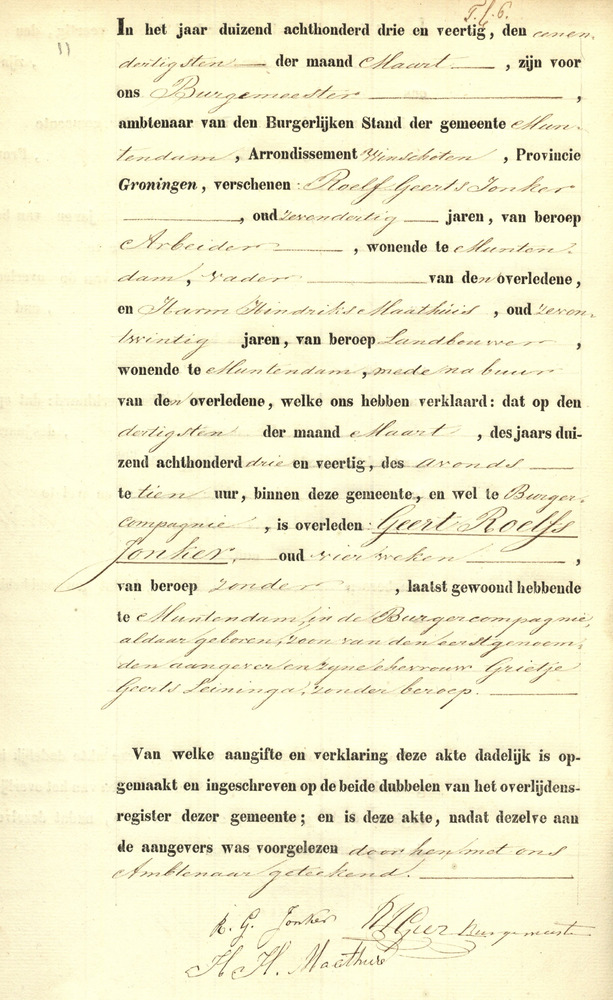 11
In het jaar duizend achthonderd drie en veertig, den eenen
dertigsten der maand Maart , zijn voor
ons Burgemeester ,
ambtenaar van den Burgerlijken Stand der gemeente Mun-
tendam , Arrondissement Winschoten , Provincie
Groningen, verschenen: Roelf Geerts Jonker
, oud zevendertig jaren, van beroep
Arbeider , wonende te Munten-
dam, vader van den overledene,
en Harm Hindriks Maathuis , oud zeven-
twintig jaren, van beroep Landbouwer ,
wonende te Muntendam, mede nabuur
van den overledene, welke ons hebben verklaard: dat op den
dertigsten der maand Maart , des jaars dui-
zend achthonderd drie en veertig, des avonds
te tien uur, binnen deze gemeente, en wel te Burger-
compagnie , is overleden: Geert Roelfs
Jonker, oud vier weken ,
van beroep zonder , laatst gewoond hebbende
te Muntendam, in de Burgercompagnie,
aldaar geboren, zoon van den eerstgenoem-
den aangever en zyne ehevrouw Grietje
Geerts Leininga, zonder beroep.
Van welke aangifte en verklaring deze akte dadelijk is op-
gemaakt en ingeschreven op de beide dubbelen van het overlijdens-
register dezer gemeente; en is deze akte, nadat dezelve aan
de aangevers was voorgelezen door hen met ons
Ambtenaar geteekend.
R. G. Jonker Burgemeester
H. H. Maathuis